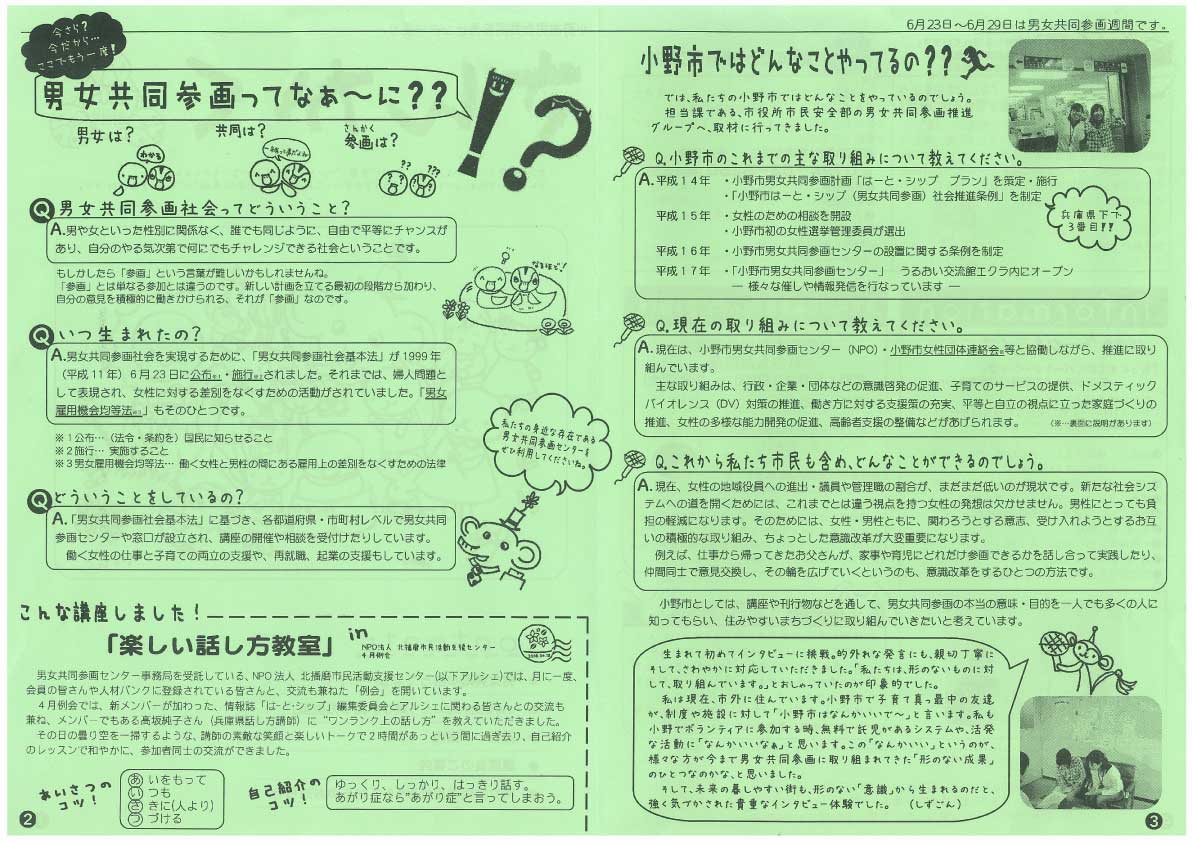 今さら？
今だから…
ここでもう一度！
男女共同参画ってなぁ～に？？
男女は？
共同は？
さんかく
参画は？
わかる
一緒って事だよね
？？
？？
！？
Q 男女共同参画社会ってどういうこと？
A.男や女といった性別に関係なく、誰でも同じように、自由で平等にチャンスが
あり、自分のやる気次第で何にでもチャレンジできる社会ということです。
もしかしたら「参画」という言葉が難しいかもしれませんね。
「参画」とは単なる参加とは違うのです。新しい計画を立てる最初の段階から加わり、
自分の意見を積極的に働きかけられる、それが「参画」なのです。
なるほど！
Q いつ生まれたの？
A.男女共同参画社会を実現するために、「男女共同参画社会基本法」が1999年
（平成11年）6月23日に公布※1・施行※2されました。それまでは、婦人問題と
して表現され、女性に対する差別をなくすための活動がされていました。「男女
雇用機会均等法※3」もそのひとつです。
※1公布…（法令・条約を）国民に知らせること
※2施行… 実施すること
※3男女雇用機会均等法… 働く女性と男性の間にある雇用上の差別をなくすための法律
私たちの身近な存在である
男女共同参画センターを
ぜひ利用してくださいね。
Q どういうことをしているの？
A.「男女共同参画社会基本法」に基づき、各都道府県・市町村レベルで男女共同
参画センターや窓口が設立され、講座の開催や相談を受付けたりしています。
働く女性の仕事と子育ての両立の支援や、再就職、起業の支援もしています。
こんな講座しました！
「楽しい話し方教室」 in
NPO法人 北播磨市民活動支援センター
4月例会
男女共同参画センター事務局を受託している、NPO法人 北播磨市民活動支援センター(以下アルシェ)では、月に一度、
会員の皆さんや人材バンクに登録されている皆さんと、交流も兼ねた「例会」を開いています。
4月例会では、新メンバーが加わった、情報誌「はーと・シップ」編集委員会とアルシェに関わる皆さんとの交流も
兼ね、メンバーでもある高坂純子さん（兵庫県話し方講師）に“ワンランク上の話し方”を教えていただきました。
その日の曇り空を一掃するような、講師の素敵な笑顔と楽しいトークで2時間があっという間に過ぎ去り、自己紹介
のレッスンで和やかに、参加者同士の交流ができました。
あいさつの
コツ！
あ いをもって
い つも
さ きに(人より)
つ づける
自己紹介の
コツ！
ゆっくり、しっかり、はっきり話す。
あがり症なら“あがり症”と言ってしまおう。
2
6月23日～6月29日は男女共同参画週間です。
小野市ではどんなことやってるの？？
では、私たちの小野市ではどんなことをやっているのでしょう。
担当課である、市役所市民安全部の男女共同参画推進
グループへ、取材に行ってきました。
Q.小野市のこれまでの主な取り組みについて教えてください。
A.平成14年 ・小野市男女共同参画計画「はーと・シップ プラン」を策定・施行
・「小野市はーと・シップ（男女共同参画）社会推進条例」を制定
平成15年 ・女性のための相談を開設
・小野市初の女性選挙管理委員が選出
平成16年 ・小野市男女共同参画センターの設置に関する条例を制定
平成17年 ・「小野市男女共同参画センター」 うるおい交流館エクラ内にオープン
― 様々な催しや情報発信を行なっています ―
兵庫県下で
3番目！！
Q.現在の取り組みについて教えてください。
A.現在は、小野市男女共同参画センター（NPO）・小野市女性団体連絡会※等と協働しながら、推進に取り
組んでいます。
主な取り組みは、行政・企業・団体などの意識啓発の促進、子育てのサービスの提供、ドメスティック
バイオレンス（DV）対策の推進、働き方に対する支援策の充実、平等と自立の視点に立った家庭づくりの
推進、女性の多様な能力開発の促進、高齢者支援の整備などがあげられます。 （※…裏面に説明があります）
Q.これから私たち市民も含め、どんなことができるのでしょう。
A.現在、女性の地域役員への進出・議員や管理職の割合が、まだまだ低いのが現状です。新たな社会シ
ステムへの道を開くためには、これまでとは違う視点を持つ女性の発想は欠かせません。男性にとっても負
担の軽減になります。そのためには、女性・男性ともに、関わろうとする意志、受け入れようとするお互
いの積極的な取り組み、ちょっとした意識改革が大変重要になります。
例えば、仕事から帰ってきたお父さんが、家事や育児にどれだけ参画できるかを話し合って実践したり、
仲間同士で意見交換し、その輪を広げていくというのも、意識改革をするひとつの方法です。
小野市としては、講座や刊行物などを通して、男女共同参画の本当の意味・目的を一人でも多くの人に
知ってもらい、住みやすいまちづくりに取り組んでいきたいと考えています。
生まれて初めてインタビューに挑戦。的外れな発言にも、親切丁寧に
そして、さわやかに対応していただきました。「私たちは、形のないものに対
して、取り組んでいます。」とおしゃっていたのが印象的でした。
私は現在、市外に住んでいます。小野市で子育て真っ最中の友達
が、制度や施設に対して「小野市はなんかいいで～」と言います。私も
小野でボランティアに参加する時、無料で託児があるシステムや、活発
な活動に「なんかいいなぁ」と思います。この「なんかいい」というのが、
様々な方が今まで男女共同参画に取り組まれてきた「形のない成果」
のひとつなのかな、と思いました。
そして、未来の暮しやすい街も、形のない「意識」から生まれるのだと、
強く気づかされた貴重なインタビュー体験でした。 （しずごん）
3